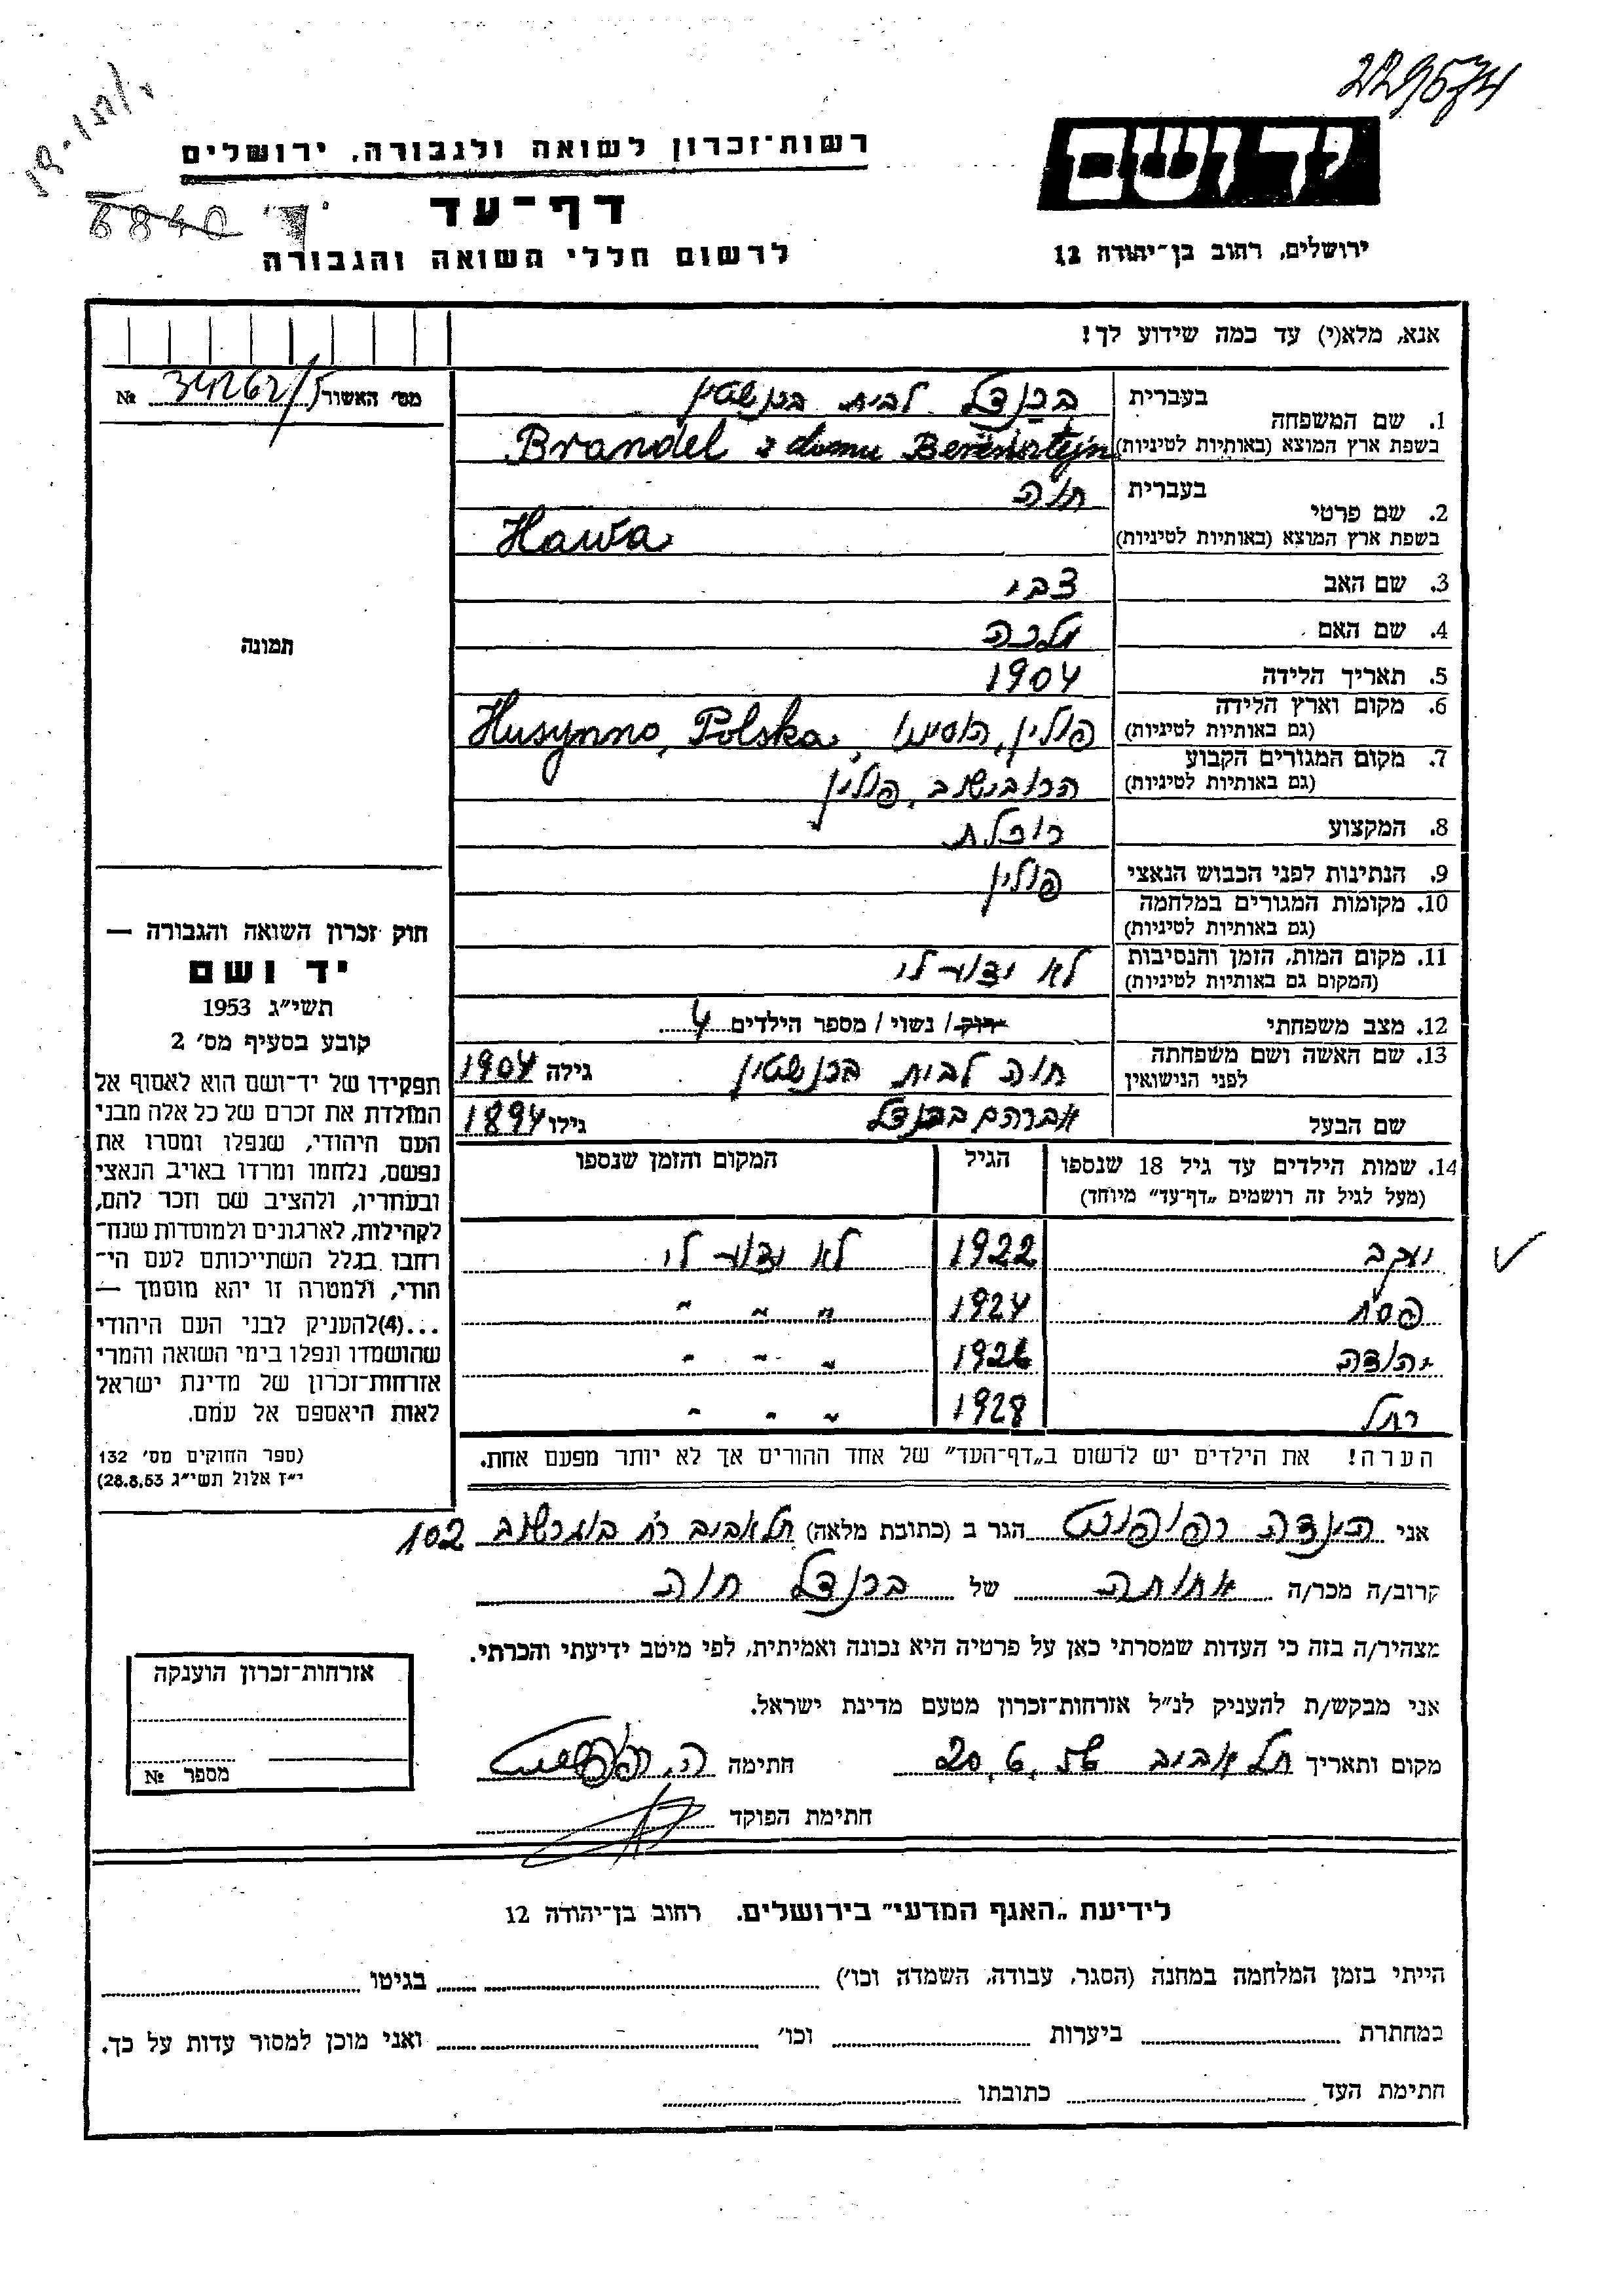 229574
רשות־זכרון לשואה ולגבורה, ירושלים
יד ושם
6840
דף־עד
לרשום חללי השואה והגבורה
ירושלים, רחוב בן־יהודה 12
אנא, מלא(י) עד כמה שידוע לך!
מס׳ האשור 34262/5 №
1. שם המשפחה
בעברית ברנדל לבית ברנשטין
בשפת ארץ המוצא (באותיות לטיניות) Brandel z domu Berensztejn
2. שם פרטי
בעברית חוה
בשפת ארץ המוצא (באותיות לטיניות) Hawa
3. שם האב צבי
4. שם האם מלכה
תמונה
5. תאריך הלידה 1904
6. מקום וארץ הלידה (גם באותיות לטיניות) פולין, הוסינו, Husynno, Polska
7. מקום המגורים הקבוע (גם באותיות לטיניות) הרובישוב, פולין
8. המקצוע רוכלת
9. הנתינות לפני הכבוש הנאצי פולין
10. מקומות המגורים במלחמה (גם באותיות לטיניות)
11. מקום המות, הזמן והנסיבות (המקום גם באותיות לטיניות) לא ידוע לי
12. מצב משפחתי רוק / נשוי / מספר הילדים 4
13. שם האשה ושם משפחתה לפני הנישואין חוה לבית ברנשטין גילה 1904
שם הבעל אברהם ברנדל גילו 1894
14. שמות הילדים עד גיל 18 שנספו הגיל המקום והזמן שנספו
(מעל לגיל זה רושמים „דף־עד” מיוחד)
יעקב 1922 לא ידוע לי
פסח 1924 " " "
יהודה 1926 " " "
רחל 1928 " " "
הערה! את הילדים יש לרשום ב„דף־העד” של אחד ההורים אך לא יותר מפעם אחת.
חוק זכרון השואה והגבורה —
יד ושם
תשי״ג 1953
קובע בסעיף מס׳ 2
תפקידו של יד־ושם הוא לאסוף אל
המולדת את זכרם של כל אלה מבני
העם היהודי, שנפלו ומסרו את
נפשם, נלחמו ומרדו באויב הנאצי
ובעוזריו, ולהציב שם וזכר להם,
לקהילות, לארגונים ולמוסדות שנח־
רבו בגלל השתייכותם לעם הי־
הודי, ולמטרה זו יהא מוסמך —
...(4) להעניק לבני העם היהודי
שהושמדו ונפלו בימי השואה והמרי
אזרחות־זכרון של מדינת ישראל
לאות היאספם אל עמם.
(ספר החוקים מס׳ 132
י״ז אלול תשי״ג 28.8.53)
אני הינדה רפופורט הגר ב (כתובת מלאה) תל אביב רח בוגרשוב 102
קרוב/ה מכר/ה אחותה של ברנדל חוה
מצהיר/ה בזה כי העדות שמסרתי כאן על פרטיה היא נכונה ואמיתית, לפי מיטב ידיעתי והכרתי.
אני מבקש/ת להעניק לנ״ל אזרחות־זכרון מטעם מדינת ישראל.
מקום ותאריך תל אביב 20.6.56 חתימה
חתימת הפוקד
אזרחות־זכרון הוענקה
מספר №
לידיעת „האגף המדעי” בירושלים. רחוב בן־יהודה 12
הייתי בזמן המלחמה במחנה (הסגר, עבודה, השמדה וכו׳) בגיטו
במחתרת ביערות וכו׳ ואני מוכן למסור עדות על כך.
חתימת העד כתובתו